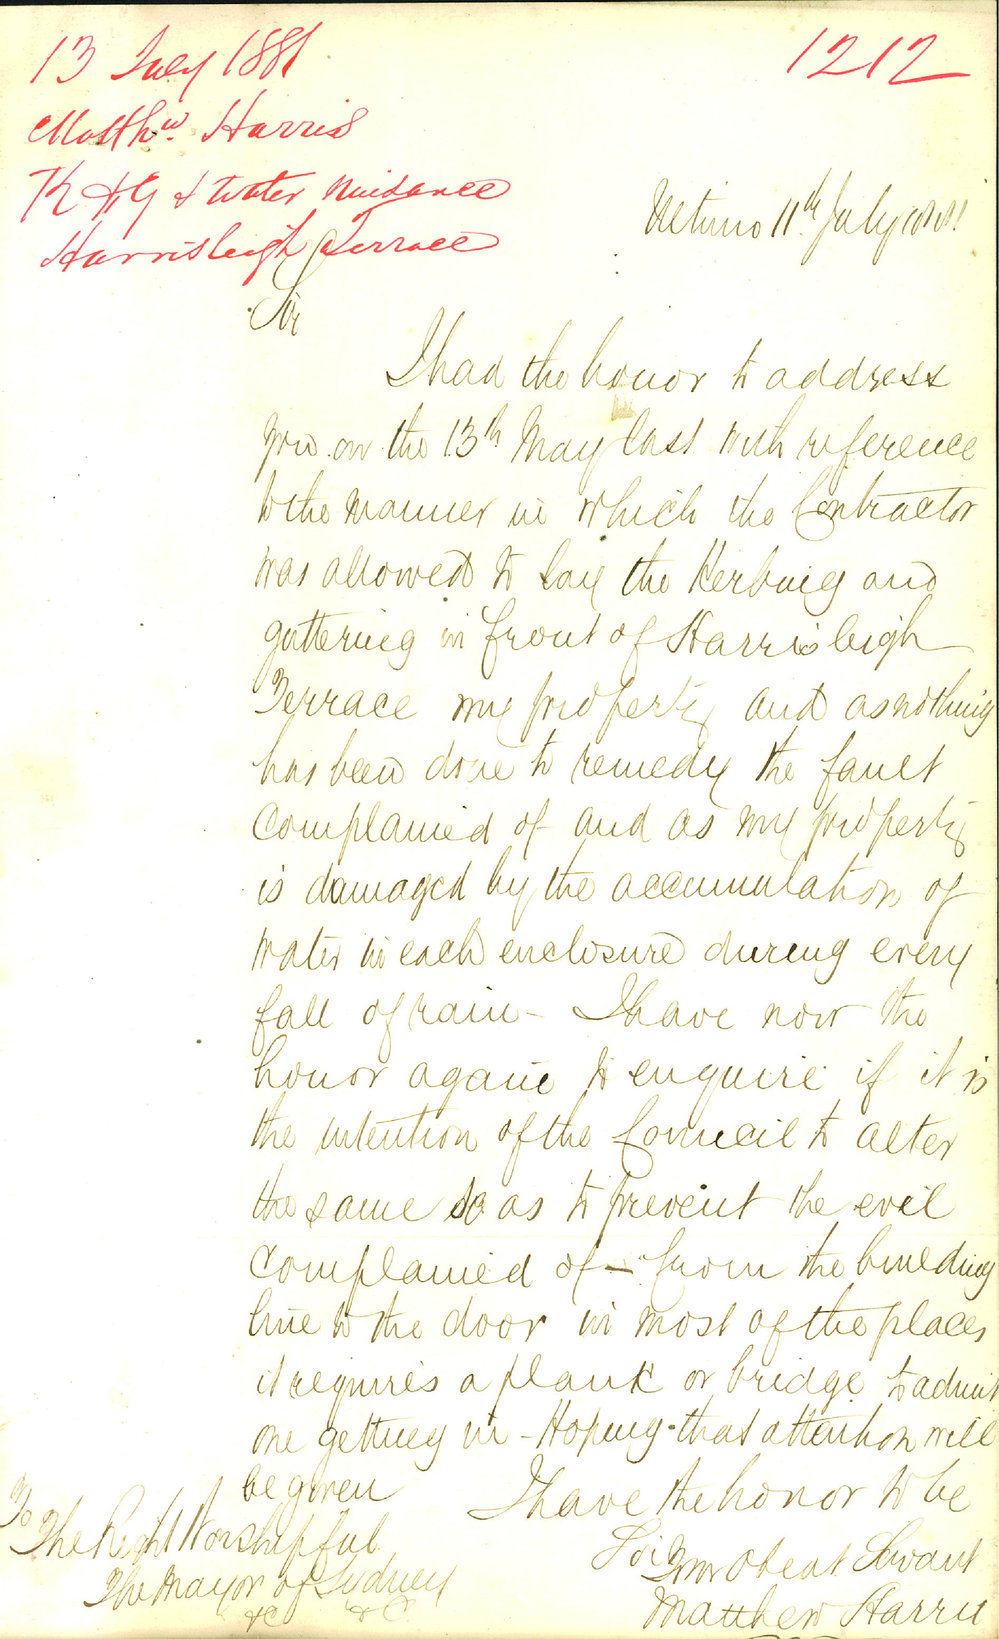 13 July 1881
1212
Matthw Harris
K & G & Water Nuisance
Harrisleigh Terrace
Ultimo 11th July 1881
Sir
I had the honor to address
you on the 13th May last with reference
to the manner in which the Contractor
was allowed to lay the Kerbing and
guttering in front of Harrisleigh
Terrace my property and as nothing
has been done to remedy the fault
complained of and as my property
is damaged by the accumulation of
water in each enclosure during every
fall of rain - I have now the
honor again to enquire if it is
the intention of the Council to alter
the same so as to prevent the evil
complained of - from the building
line to the door in most of the places
it requires a plank or bridge to admit
one getting in - Hoping that attention will
be given
I have the honor to be
Sir
Your Obeat Servant
Matthew Harris
To
The Right Worshipful
The Mayor of Sydney
&c &c